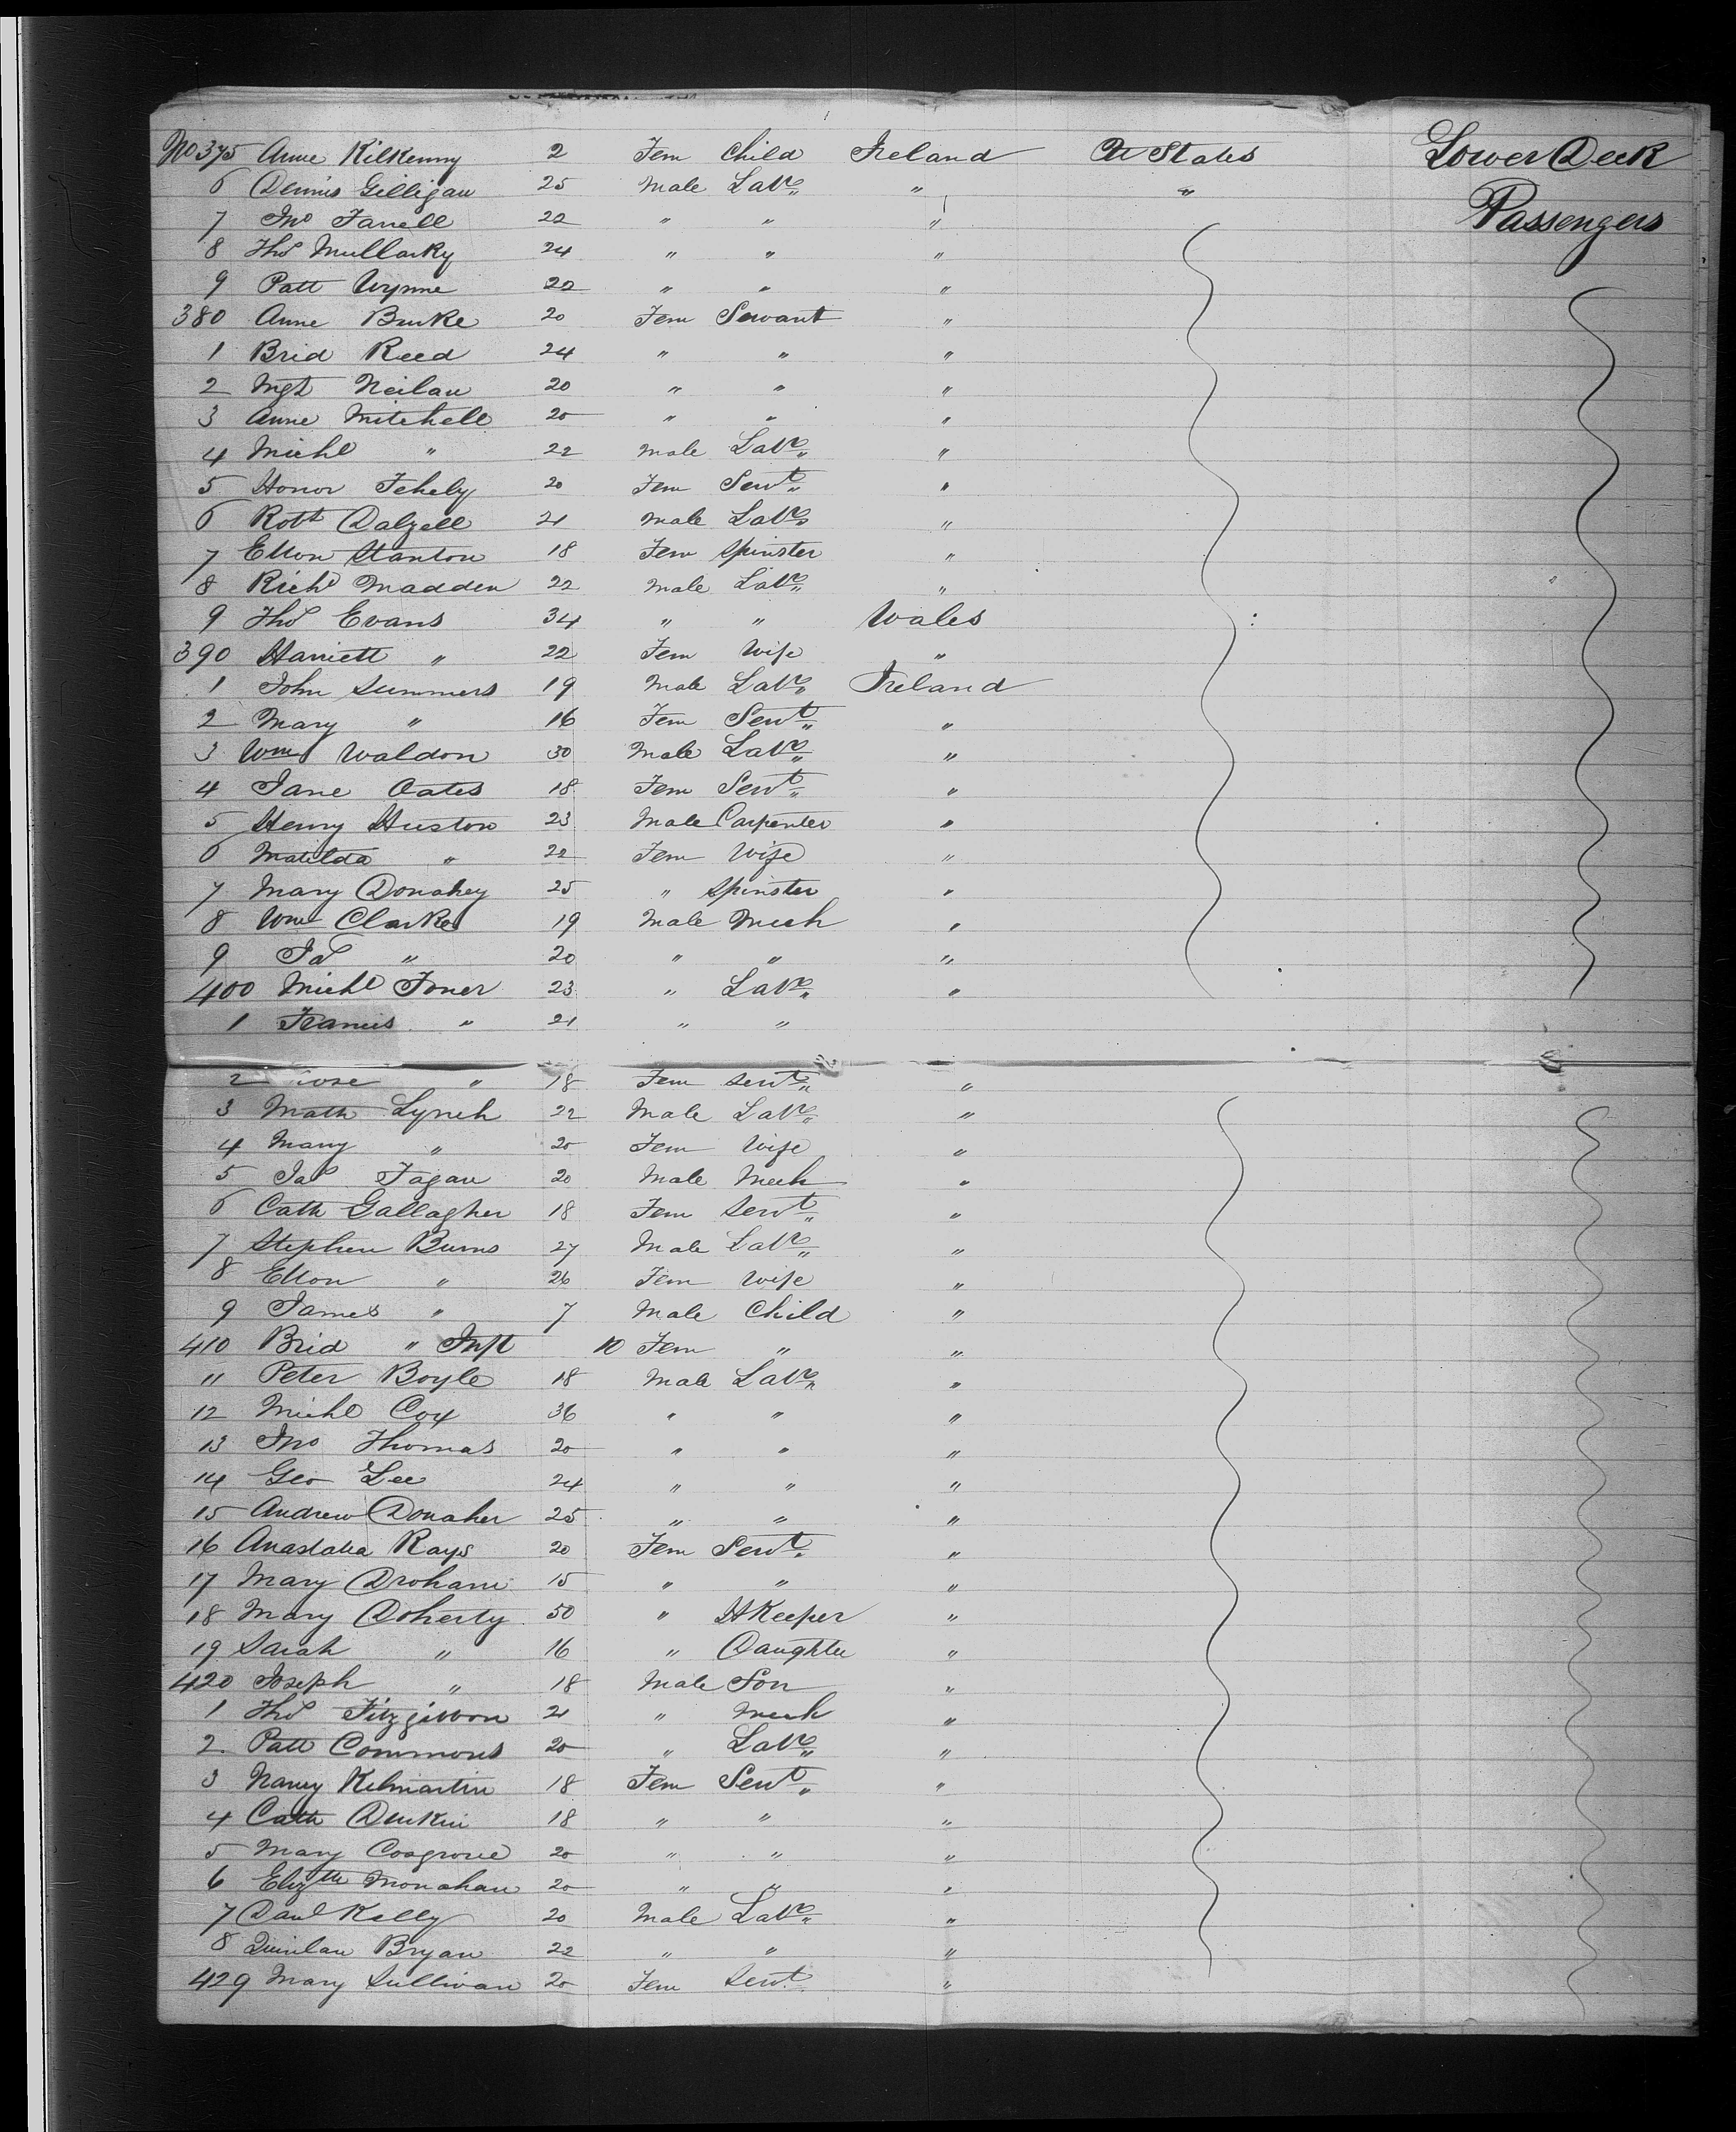 No 375 Anne Kilkenny 2 Fem Child Ireland U States Lower Deck
6 Dennis Gilligan 25 Male Labr " " Passengers
7 Jno Farrell 22 " " "
8 Thos Mullarky 24 " " "
9 Patt Wynne 22 " " "
380 Anne Burke 20 Fem Servant "
1 Brid Reed 24 " " "
2 Mgt Neilan 20 " " "
3 Anne Mitchell 20 " " "
4 Michl " 22 Male Labr "
5 Honor Fehely 20 Fem Servt "
6 Robt Dalzell 21 Male Labr "
7 Ellen Stanton 18 Fem Spinster "
8 Richd Madden 22 Male Labr "
9 Thos Evans 34 " " Wales
390 Harriett " 22 Fem Wife "
1 John Summers 19 Male Labr Ireland
2 Mary " 16 Fem Servt "
3 Wm Waldon 30 Male Labr "
4 Jane Oates 18 Fem Servt "
5 Henry Huston 23 Male Carpenter "
6 Matilda " 22 Fem Wife "
7 Mary Donahey 25 " Spinster "
8 Wm Clarke 19 Male Mech "
9 Jas " 20 " " "
400 Michl Toner 23 " Labr "
1 Francis " 21 " "
2 Rose " 18 Fem Servt "
3 Math Lynch 22 Male Labr "
4 Mary " 20 Fem Wife "
5 Jas Fagan 20 Male Mech "
6 Cath Gallagher 18 Fem Servt "
7 Stephen Burns 27 Male Labr "
8 Ellen " 26 Fem Wife "
9 James " 7 Male Child "
410 Brid " Inft 10 Fem " "
11 Peter Boyle 18 Male Labr "
12 Michl Cox 36 " " "
13 Jno Thomas 20 " " "
14 Geo Lee 24 " " "
15 Andrew Donaher 25 " " "
16 Anastatia Rays 20 Fem Servt "
17 Mary Drohan 15 " " "
18 Mary Doherty 50 " HKeeper "
19 Sarah " 16 " Daughter "
420 Joseph " 18 Male Son "
1 Thos Fitzgibbon 21 " Mech "
2 Patt Commons 20 " Labr "
3 Nancy Kilmartin 18 Fem Servt "
4 Cath Durkin 18 " " "
5 Mary Cosgrove 20 " " "
6 Elizth Monahan 20 " " "
7 Danl Kelly 20 Male Labr "
8 Quinlan Bryan 22 " " "
429 Mary Sullivan 20 Fem Servt "